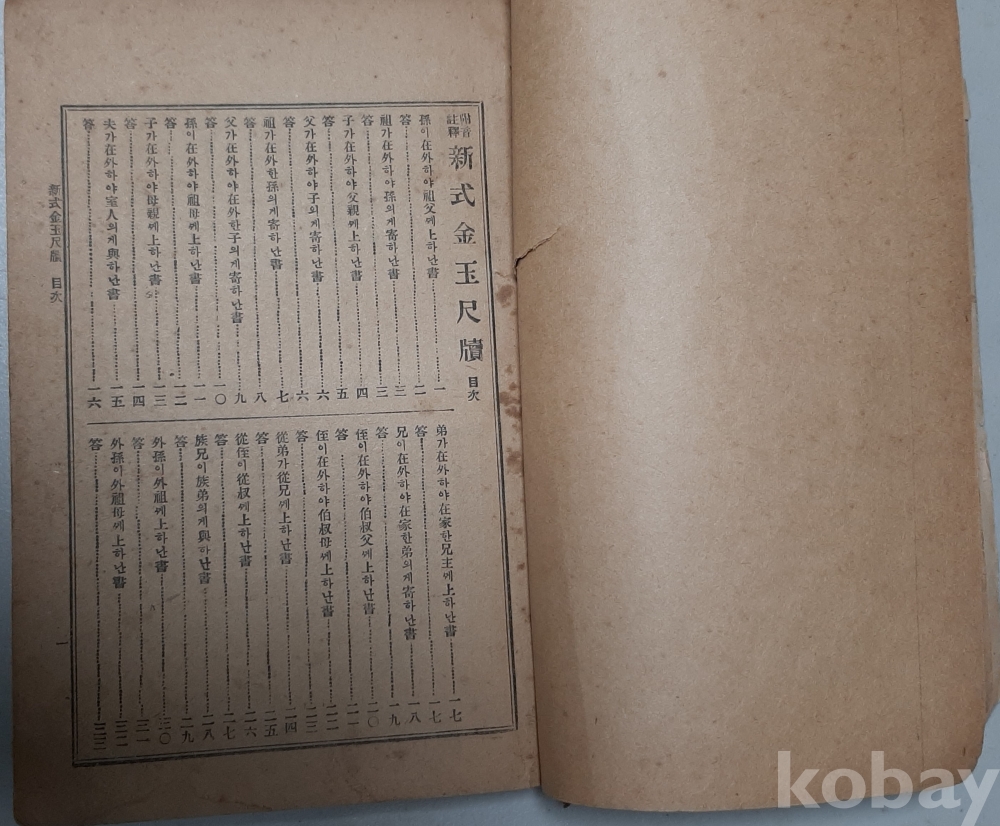 附音註釋 新式金玉尺牘 目次
孫이在外하야祖父ᄭᅦ上하난書……一
答……二
祖가在外하야孫의게寄하난書……三
答……三
子가在外하야父親ᄭᅦ上하난書……四
答……五
父가在外하야子의게寄하난書……六
答……六
祖가在外한孫의게寄하난書……七
答……八
父가在外하야在外한子의게寄하난書……九
答……一〇
孫이在外하야祖母ᄭᅦ上하난書……一一
答……一二
子가在外하야母親ᄭᅦ上하난書……一三
答……一四
夫가在外하야室人의게與하난書……一五
答……一六
弟가在外하야在家한兄主ᄭᅦ上하난書……一七
答……一七
兄이在外하야在家한弟의게寄하난書……一八
答……一九
侄이在外하야伯叔父ᄭᅦ上하난書……二〇
答……二一
侄이在外하야伯叔母ᄭᅦ上하난書……二二
答……二三
從弟가從兄ᄭᅦ上하난書……二四
答……二五
從侄이從叔ᄭᅦ上하난書……二六
答……二七
族兄이族弟의게與하난書……二八
答……二九
外孫이外祖ᄭᅦ上하난書……三〇
答……三一
外孫이外祖母ᄭᅦ上하난書……三二
答……三三
新式金玉尺牘 目次
一
kobay